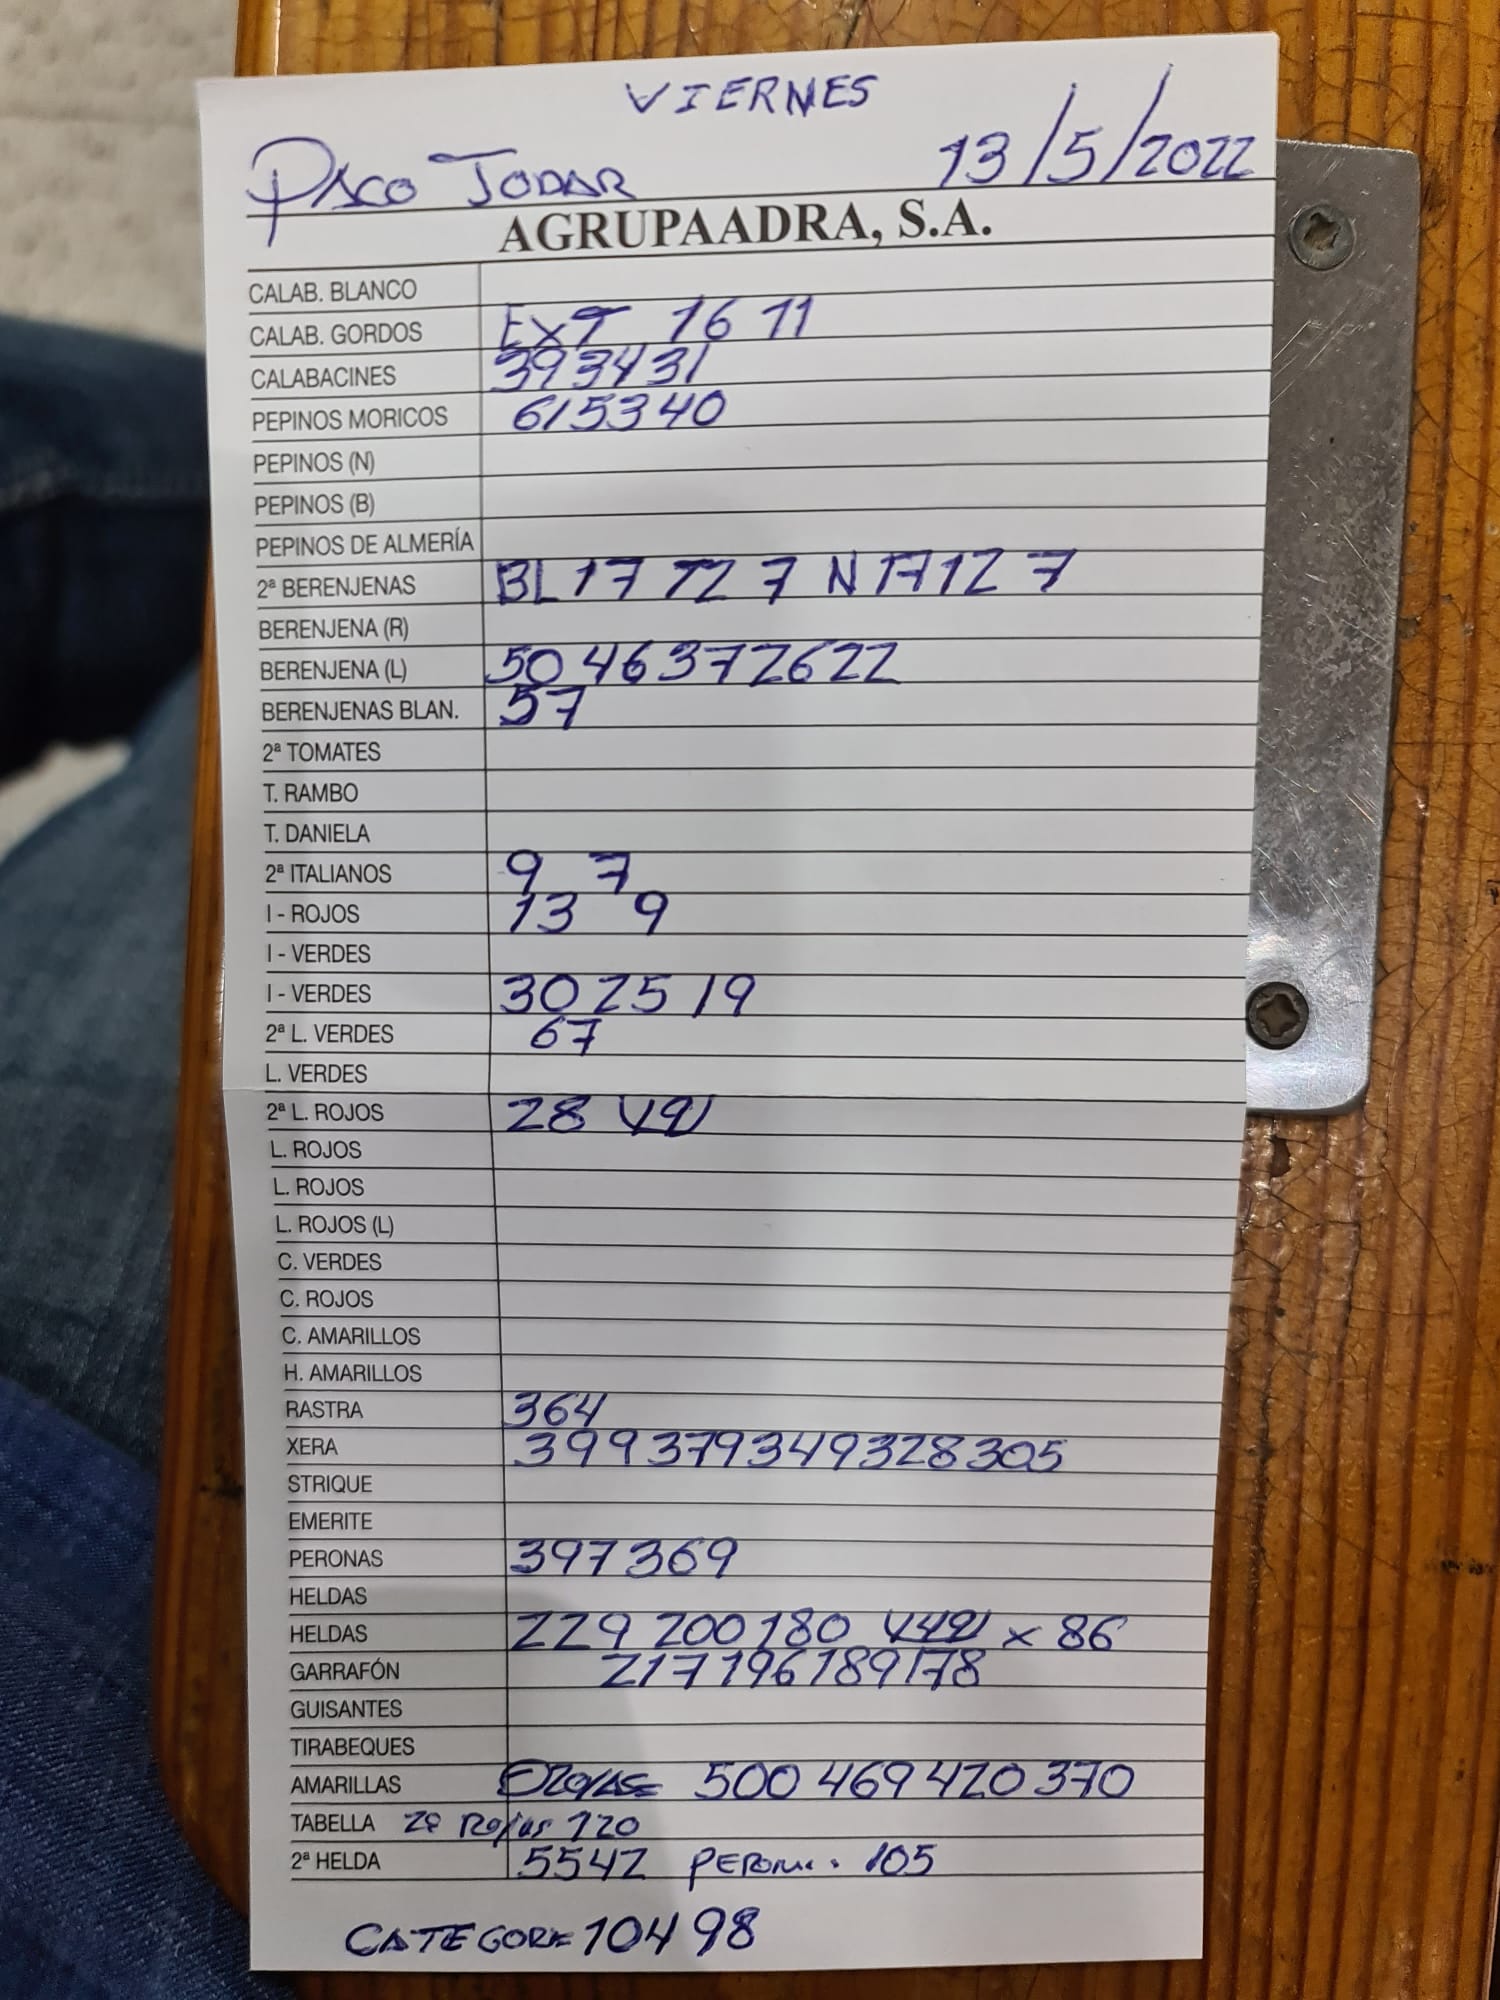 VIERNES
PACO JODAR 13/5/2022
AGRUPAADRA, S.A.
CALAB. BLANCO
CALAB. GORDOS EXT 16 11
CALABACINES 39 34 31
PEPINOS MORICOS 61 53 40
PEPINOS (N)
PEPINOS (B)
PEPINOS DE ALMERÍA
2ª BERENJENAS BL 17 12 7 N 17 12 7
BERENJENA (R)
BERENJENA (L) 50 46 37 26 22
BERENJENAS BLAN. 57
2ª TOMATES
T. RAMBO
T. DANIELA
2ª ITALIANOS 9 7
I - ROJOS 13 9
I - VERDES
I - VERDES 30 25 19
2ª L. VERDES 67
L. VERDES
2ª L. ROJOS 28
L. ROJOS
L. ROJOS
L. ROJOS (L)
C. VERDES
C. ROJOS
C. AMARILLOS
H. AMARILLOS
RASTRA 364
XERA 399 379 349 328 305
STRIQUE
EMERITE
PERONAS 397 369
HELDAS
HELDAS 229 200 180 x 86
GARRAFÓN 217 196 189 178
GUISANTES
TIRABEQUES
AMARILLAS 500 469 420 370
TABELLA 2ª Rojas 120
2ª HELDA 55 42 PERONA. 105
CATEGORI 104 98